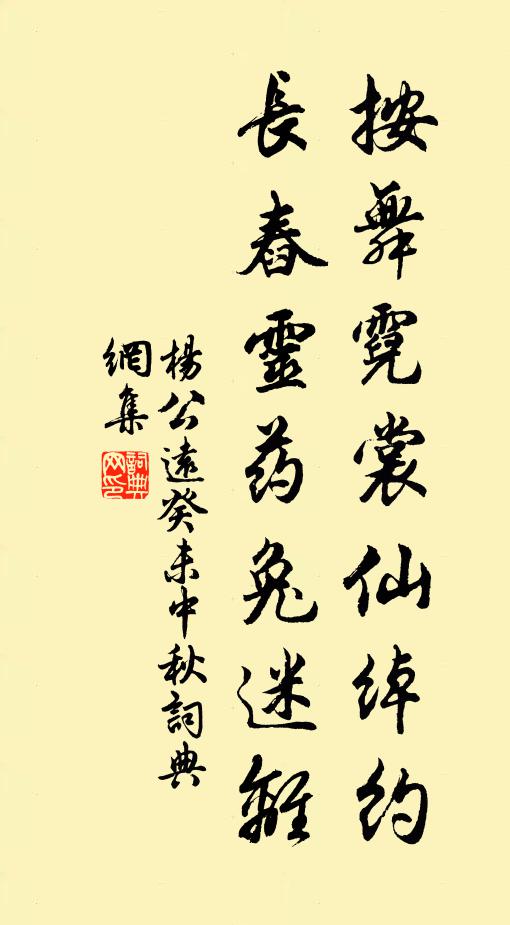 按舞霓裳仙綽约
長舂靈药兔迷離
楊公遠癸未中秋詞典
網集
詞典網印